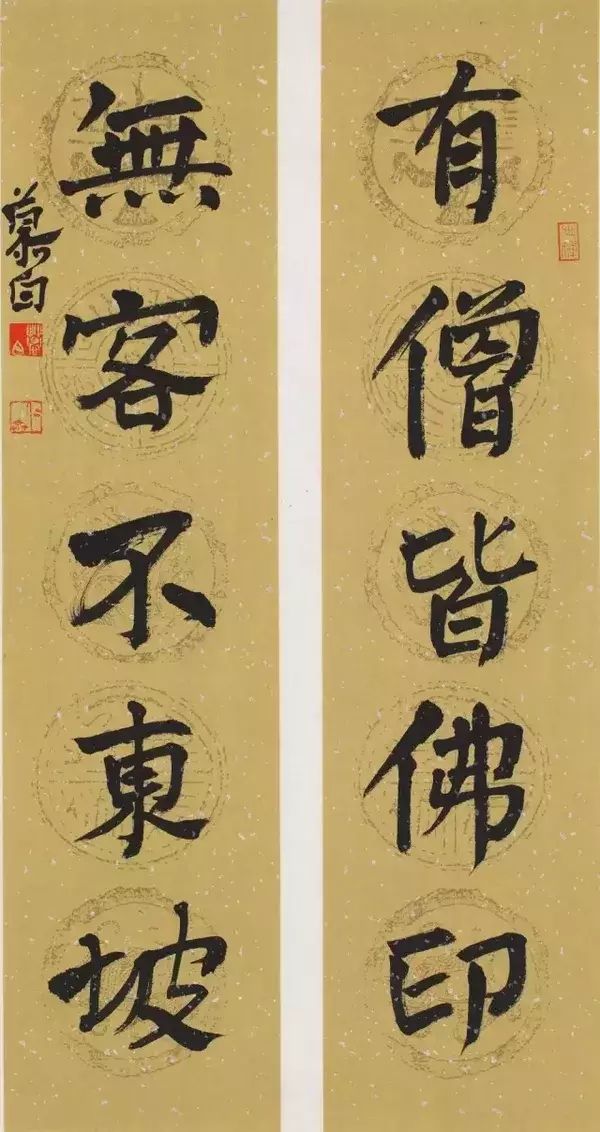 有僧皆佛印
無客不東坡
慕白